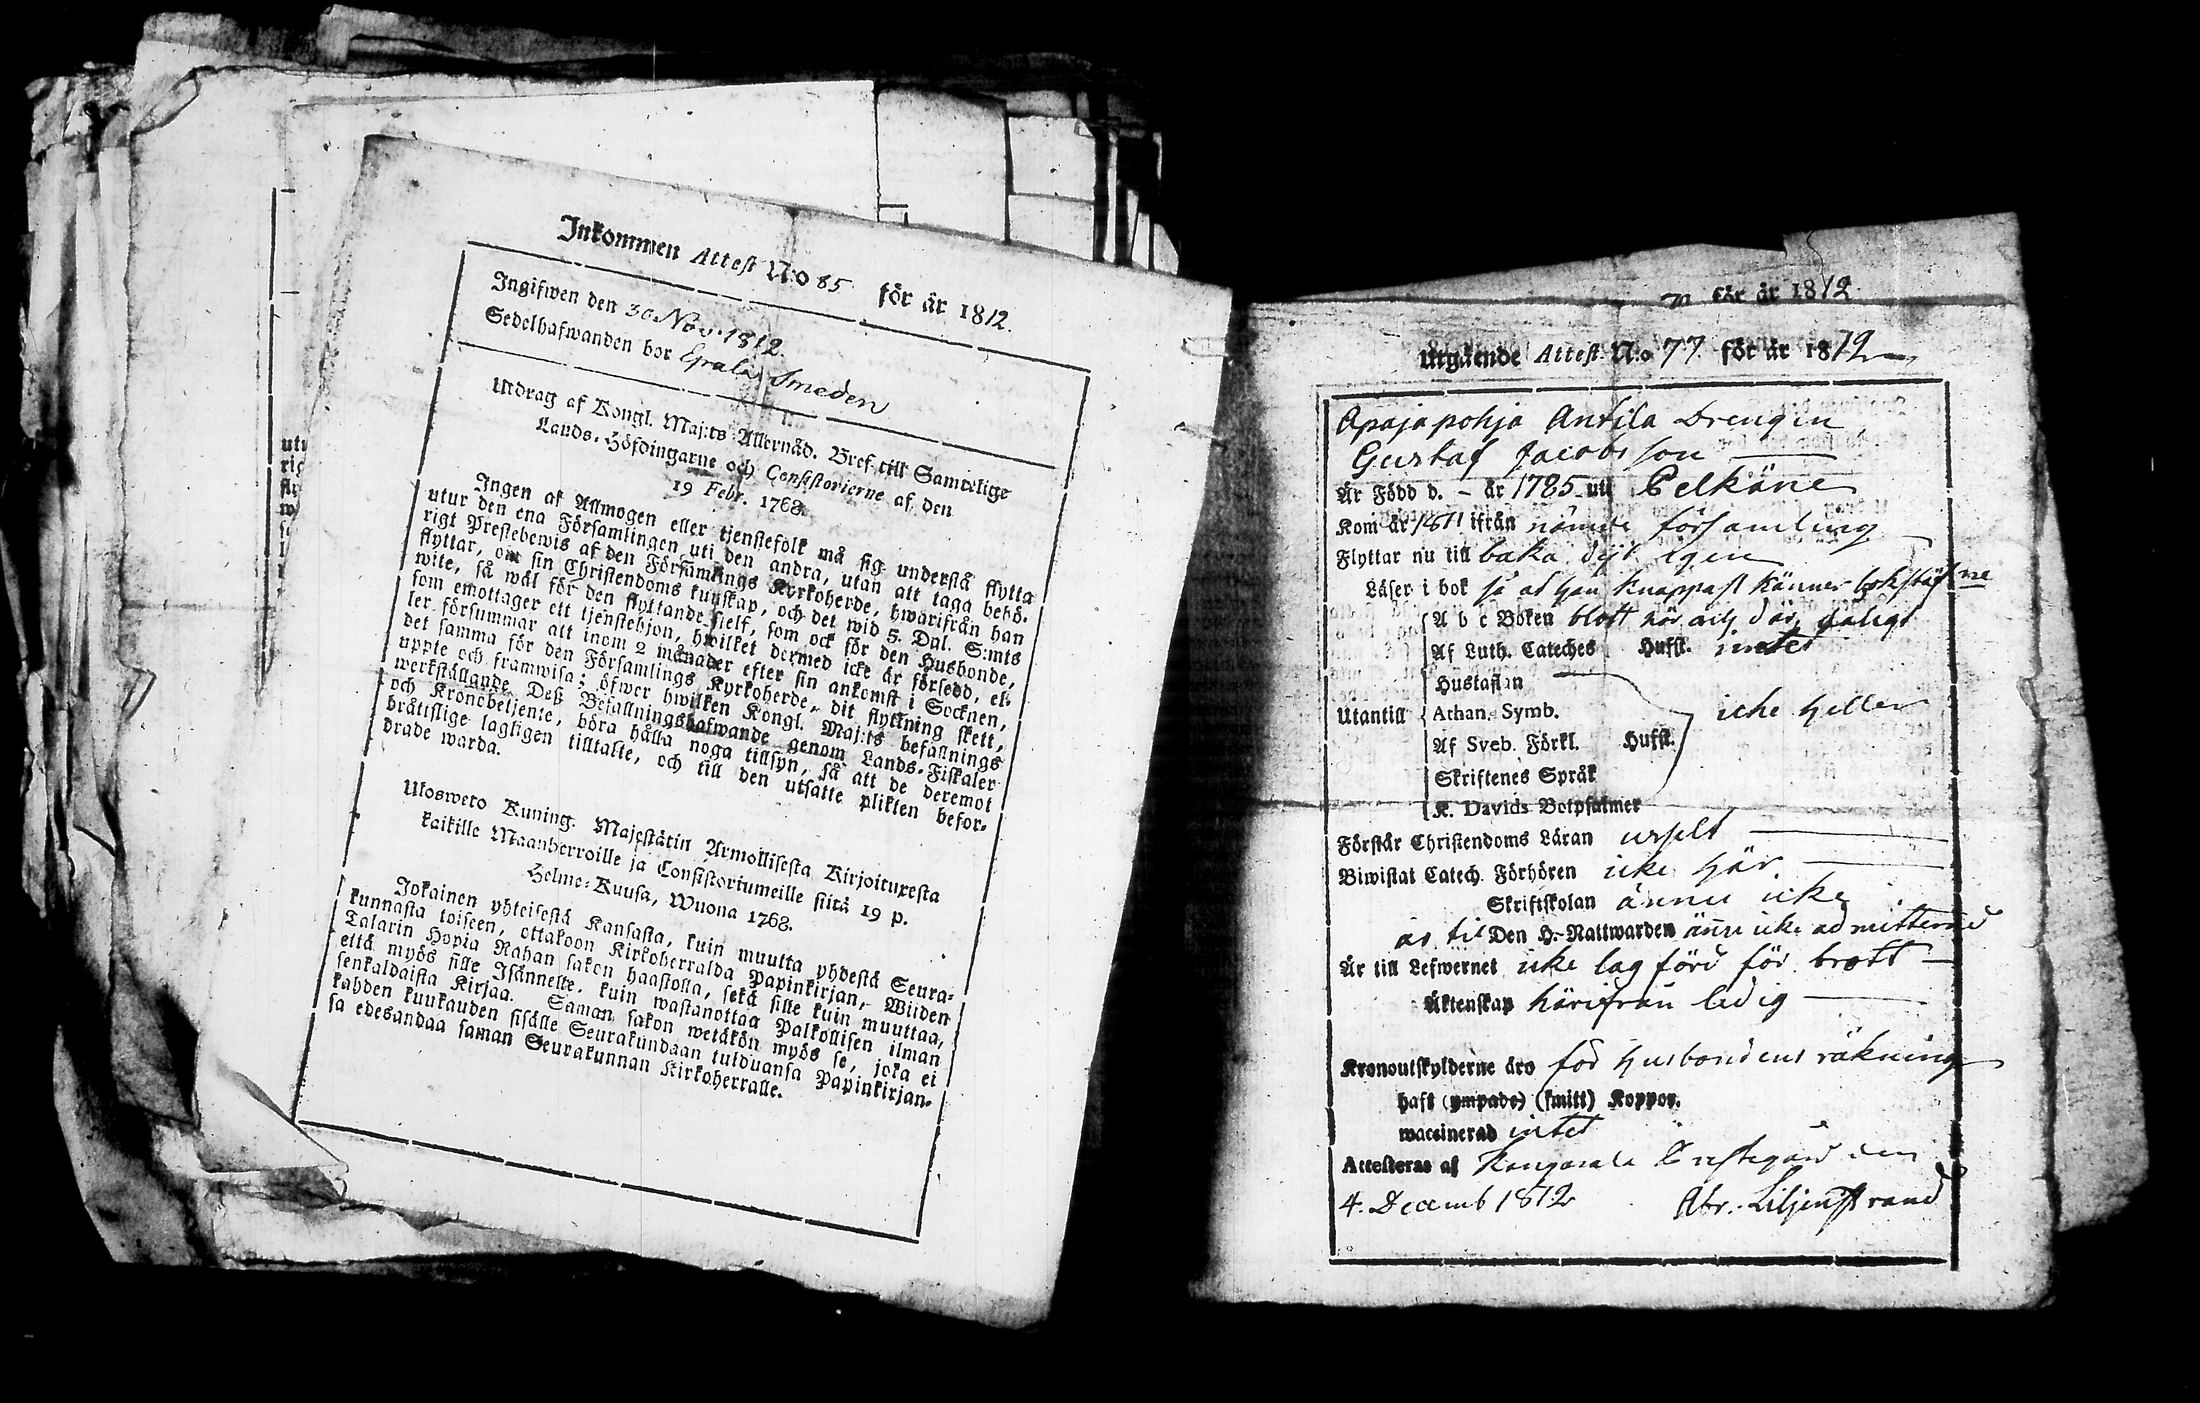 Inkommen Attest N:o 85 för år 1812.
Ingifwen den 30 Nov. 1812.
Sedelhafwanden bor Epala Smeden
Utdrag af Kongl. Maj:ts Allernåd. Bref till Samtelige
Lands-Höfdingarne och Consistorierne af den
19 Febr. 1768.
Ingen af Allmogen eller tjenstefolk må sig understå flytta
utur den ena Församlingen uti den andra, utan att taga behö-
rigt Prestebewis af den Församlings Kyrkoherde, hwarifrån han
flyttar, om sin Christendoms kunskap, och det wid 5. Dal. S:mts
wite, så wäl för den flyttande sielf, som ock för den Husbonde,
som emottager ett tjenstehjon, hwilket dermed icke är försedd, el-
ler försummar att inom 2 månader efter sin ankomst i Socknen,
det samma för den Församlings Kyrkoherde, dit flyttning skett,
uppte och framwisa; öfwer hwilken Kongl. Maj:ts befallnings
werkställande Deß Befallningshafwande genom Lands-Fiskaler
och Kronobetjente, böra hålla noga tillsyn, så att de deremot
bråttslige lagligen tilltalte, och till den utsatte plikten befor-
drade warda.
Ulosweto Kuning. Majestätin Armollisesta Kirjoituxesta
kaikille Maanherroille ja Consistoriumeille siitä 19 p.
Helme-Kuusa, Wuona 1768.
Jokainen yhteisestä Kansasta, kuin muutta yhdestä Seura-
kunnasta toiseen, ottakoon Kirkoherralda Papinkirjan, Wiiden
Talarin Hopia Rahan sakon haastolla, sekä sille kuin muuttaa,
että myös sille Isännelle, kuin wastanottaa Palkollisen ilman
senkaldaista Kirjaa. Saman sakon wetäkön myös se, joka ei
kahden kuukauden sisälle Seurakundaan tulduansa Papinkirjan-
sa edesandaa saman Seurakunnan Kirkoherralle.
för år 1812
Utgående Attest N:o 77 för år 1812
Apajapohja Antila Drengen
Gustaf Jacobsson
Är Född d. - år 1785 uti Pelkäne
Kom år 1811 ifrån nämde församling
Flyttar nu till baka dijt igen
Läser i bok så at han knappast känner bokstäfverne
A b c Boken blott här och där, galigt
Af Luth. Cateches Hufst. intet
Hustaflan
Utantill Athan. Symb. icke heller
Af Sveb. Förkl. Hufst.
Skriftenes Språk
K. Davids Botpsalmer
Förstår Christendoms Läran uselt
Biwistat Catech. Förhören icke här
Skriftskolan ännu icke
är til Den H. Nattwarden ännu icke admitterad
Är till Lefwernet icke lagförd för brott
Äktenskap härifrån ledig
Kronoutskylderne äro för husbondens räkning
haft (ympade) (smitt) Koppor.
waccinerad intet
Attesteras af Kangasala Prestegård den
4. Decemb 1812 Abr. Liljenstrand